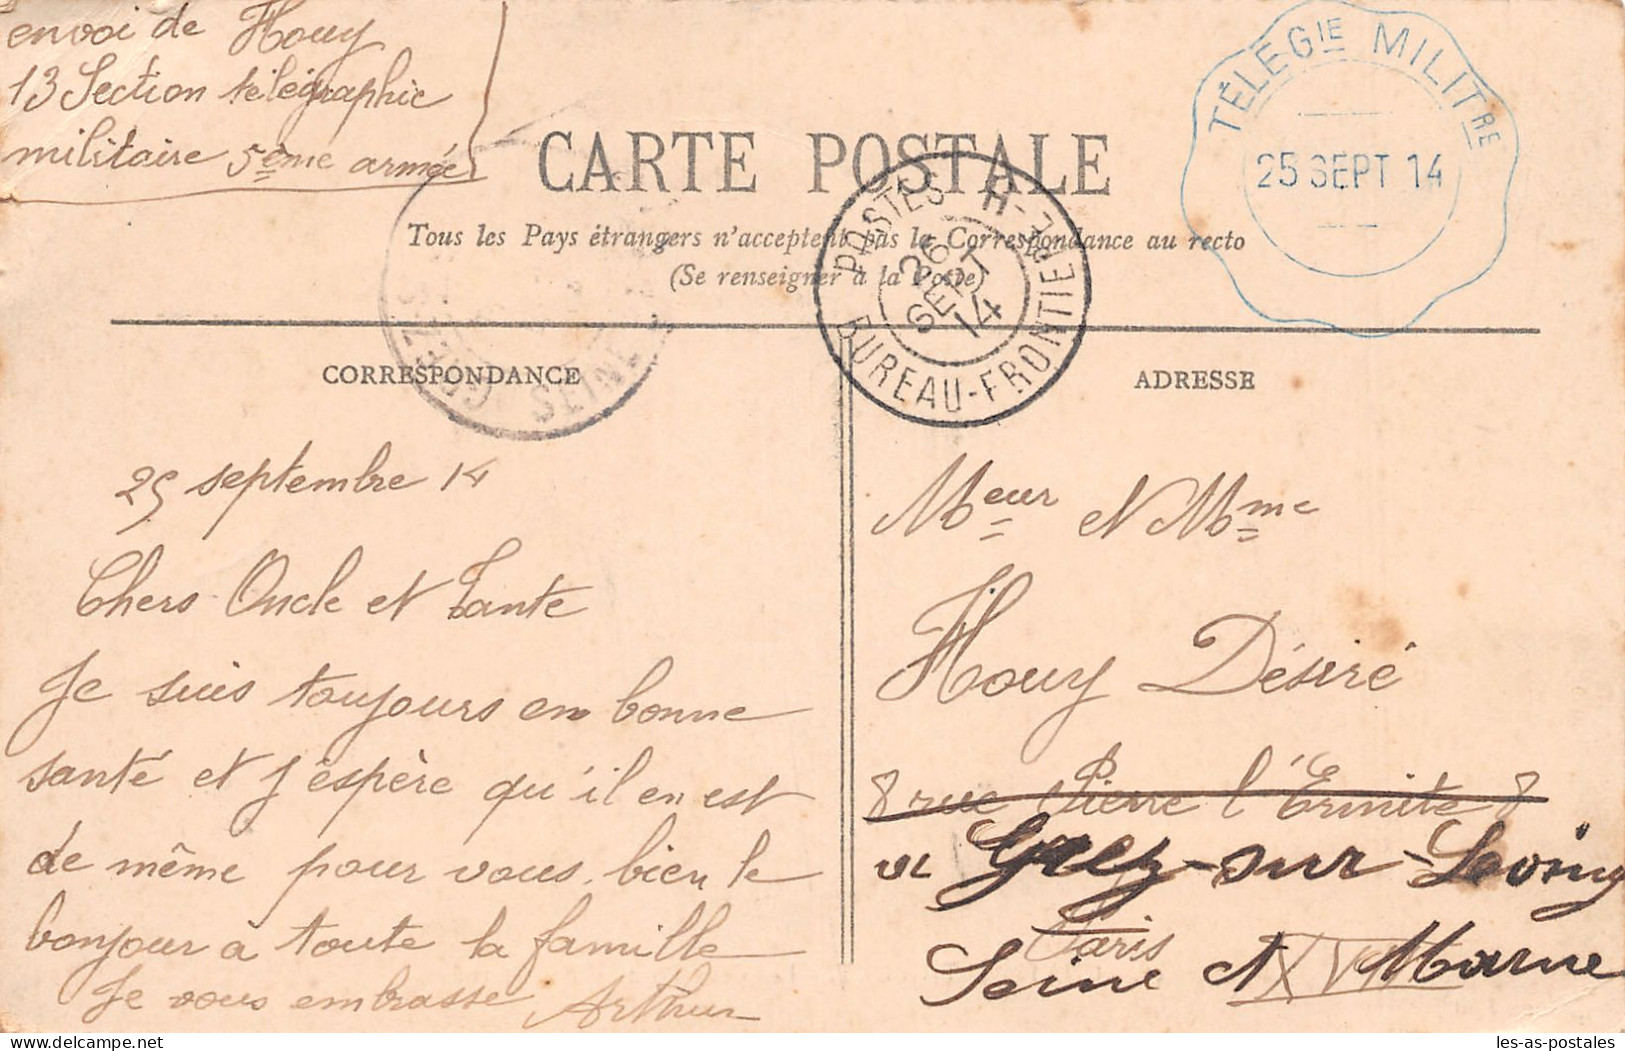 envoi de Houy
13 Section télégraphic
militaire 5ème armée
TÉLÉGIE MILITRE
25 SEPT 14
CARTE POSTALE
Tous les Pays étrangers n'acceptent pas la Correspondance au recto
(Se renseigner à la Poste)
POSTES
26
SEPT
14
BUREAU-FRONTIÈRE-H
GREZ-S
SEINE
CORRESPONDANCE
ADRESSE
25 septembre 14
Chers Oncle et Tante
Je suis toujours en bonne
santé et j'éspère qu'il en est
de même pour vous, bien le
bonjour à toute la famille
Je vous embrasse Arthur
Meur et Mme
Houy Désiré
8 rue Pierre l'Ermite 8
Grez-sur-Loing
Paris XVIII
Seine et Marne
les-as-postales